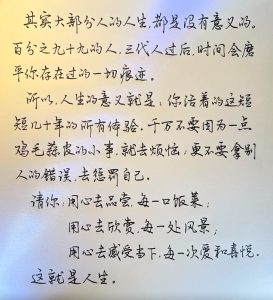 其实大部分人的人生,都是没有意义的。
百分之九十九的人,三代人过后,时间会磨
平你存在过的一切痕迹。
所以,人生的意义就是:你活着的这短
短几十年的所有体验。千万不要因为一点
鸡毛蒜皮的小事,就去烦恼;更不要拿别
人的错误,去惩罚自己。
请你:用心去品尝,每一口饭菜;
用心去欣赏,每一处风景;
用心去感受当下,每一次爱和喜悦.
这就是人生。